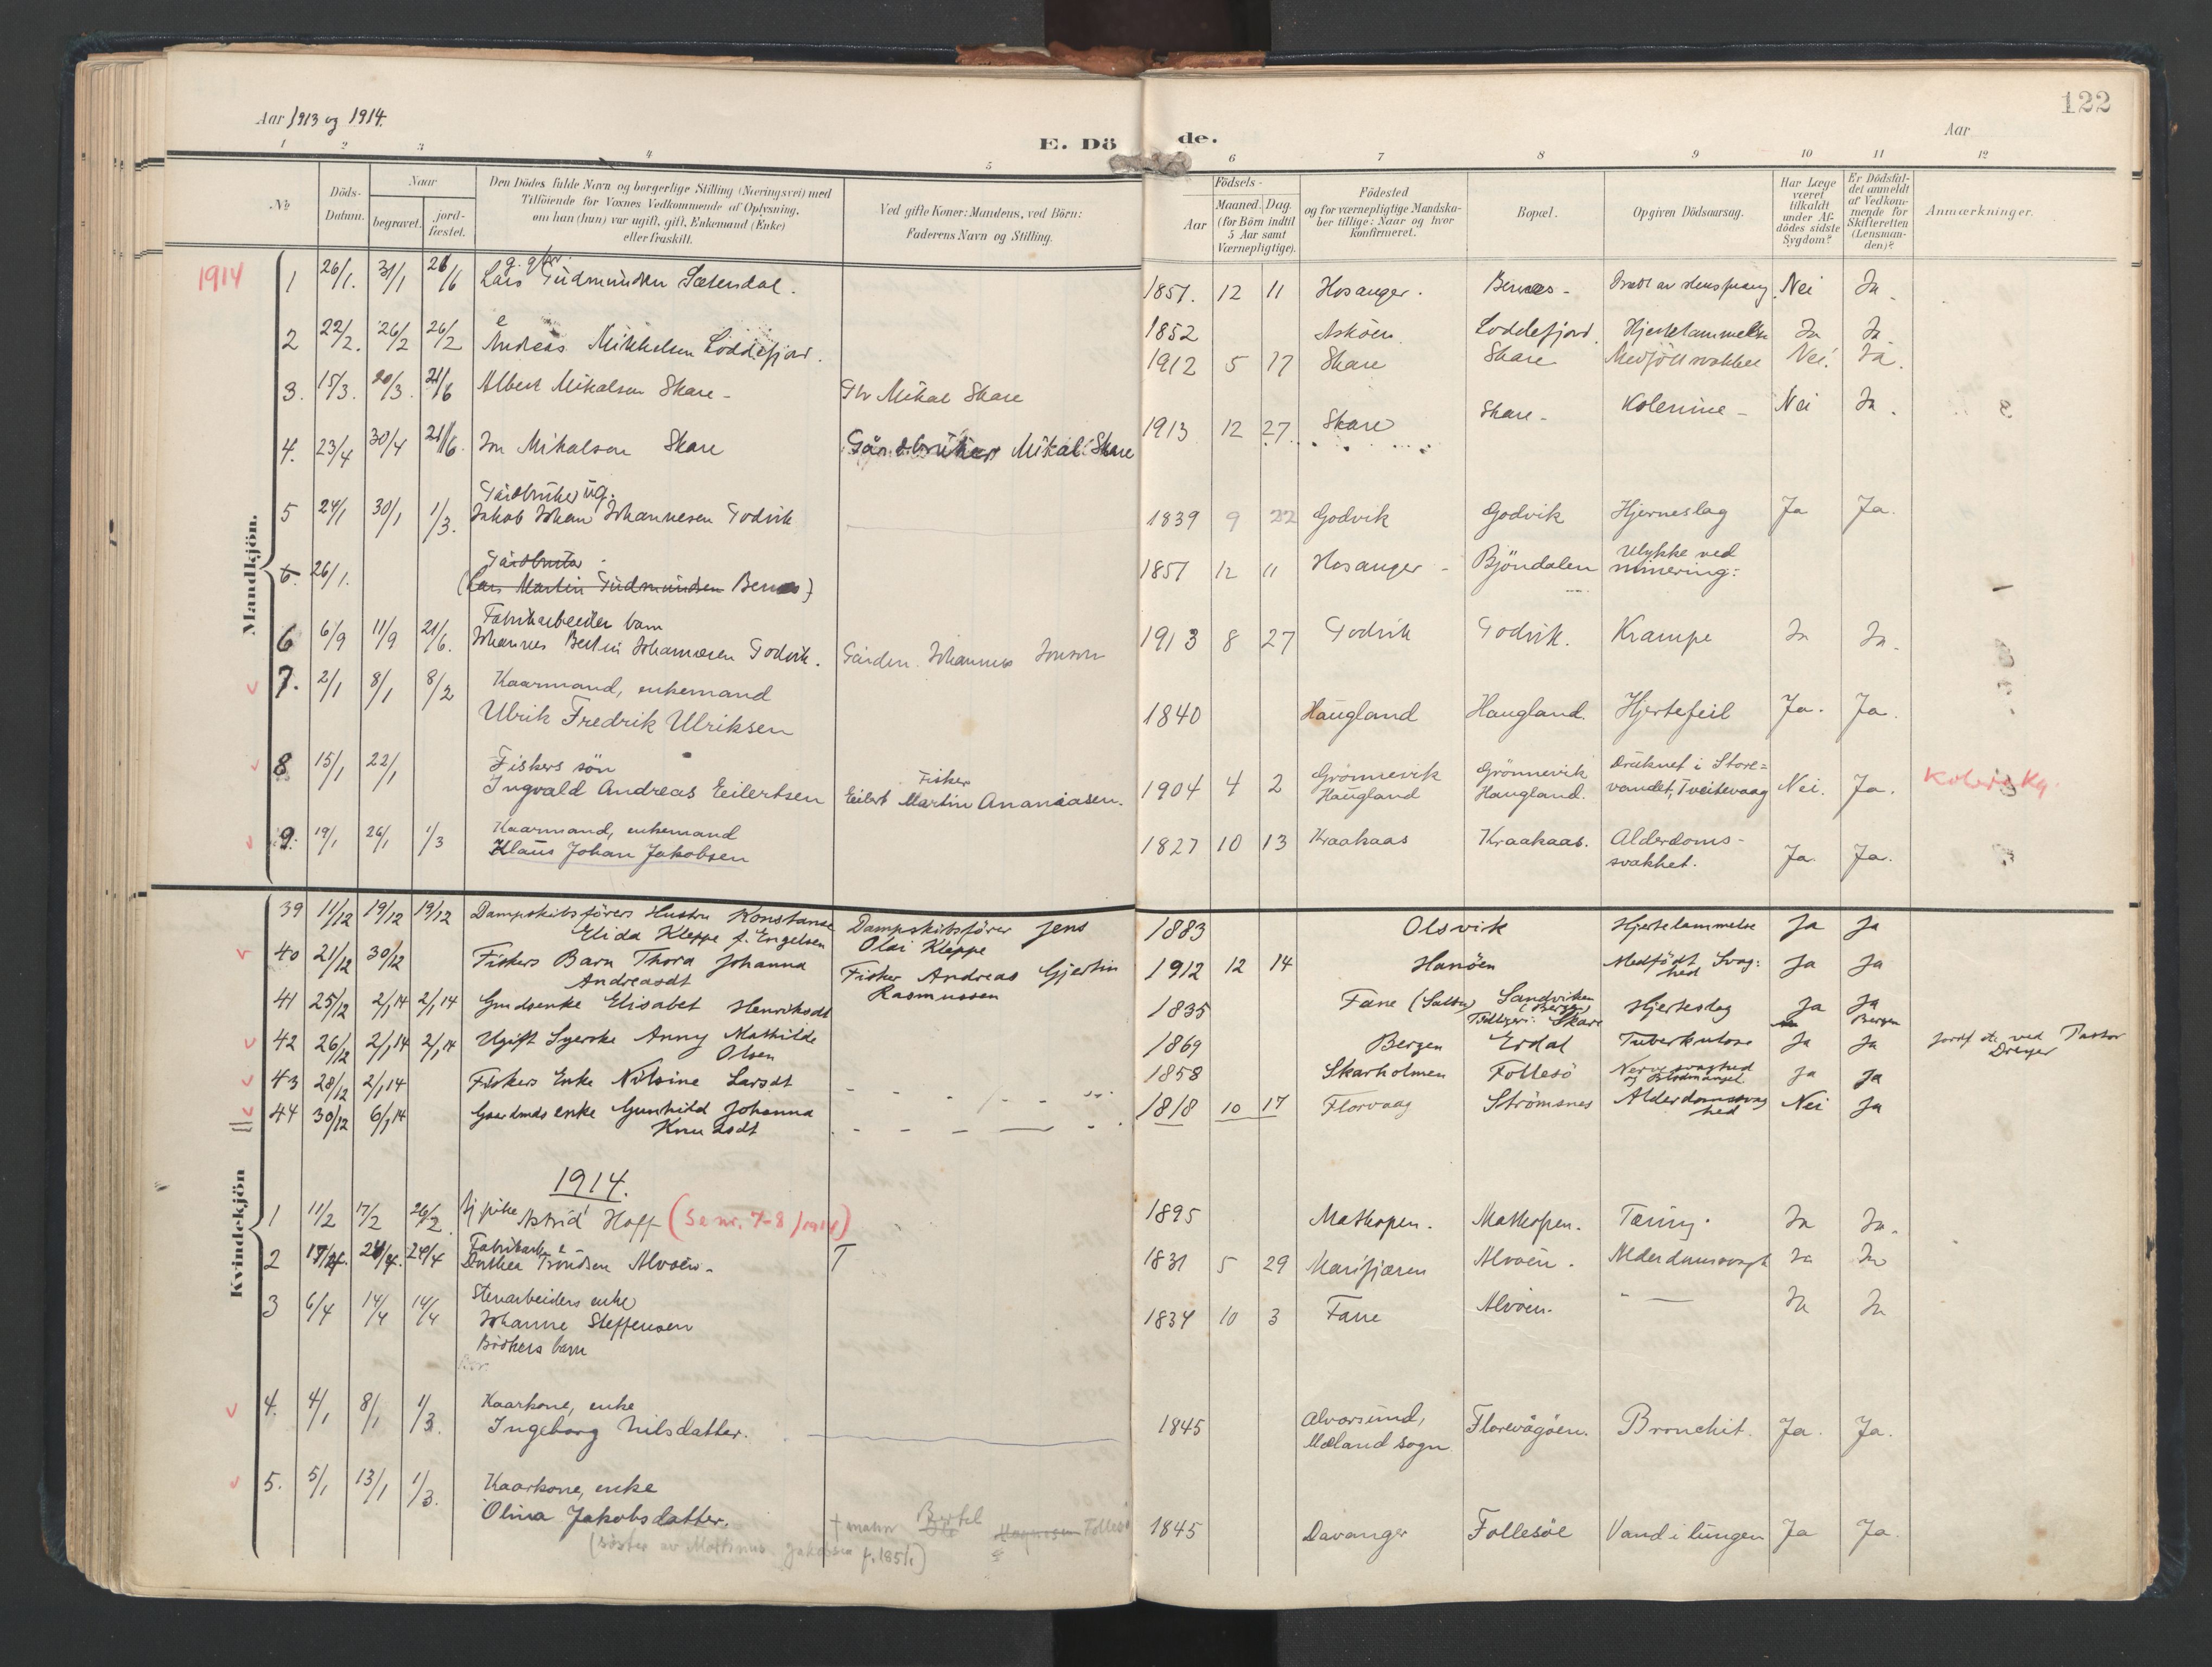 122
Aar 1913 og 1914.
Aar
E. Dö de.
1 2 3 4 5 6 7 8 9 10 11 12
No
Döds-
Datum.
Naar
begravet.
jord-
fæstet.
Den Dödes fulde Navn og borgerlige Stilling (Næringsvei) med
Tilföiende for Voxnes Vedkommende af Oplysning,
om han (hun) var ugift, gift, Enkemand (Enke)
eller fraskilt.
Ved gifte Koner: Mandens, ved Börn:
Faderens Navn og Stilling.
Födsels-
Aar
Maaned. Dag.
(for Börn indtil
5 Aar samt
Værnepligtige).
Födested
og for værnepligtige Mandska-
ber tillige: Naar og hvor
konfirmeret.
Bopæl.
Opgiven Dödsaarsag.
Har Læge
været
tilkaldt
under Af-
dödes sidste
Sygdom?
Er Dödsfal-
det anmeldt
af Vedkom-
mende for
Skifteretten
(Lensman-
den)?
Anmærkninger.
Mandkjön.
1914
1 26/1. 31/1 21/6 Lars Gudmundsen Sætendal. 1851. 12 11 Hosanger. Bernes - Nei Ja
2 22/2. 26/2 26/2 Andreas Mikkelsen Loddefjord. 1852 Asköen Loddefjord Hjertelammelse Ja Ja
3. 15/3. 20/3. 21/6 Albert Mikalsen Skare - Gbr Mikal Skare 1912 5 17 Skare Skare Medfödt svakhet Nei. Ja.
4. 23/4 30/4 21/6. Jon Mikalson Skare Gårdbruker Mikal Skare 1913 12 27. Skare Skare - Kolerine - Nei Ja.
Gårdbruker ug.
5 24/1 30/1 1/3. Jakob Johan Johannesen Godvik 1839 9 22 Godvik Godvik Hjerneslag Ja Ja.
Gårdbruker
6. 26/1. (Lars Martin Gudmundsen Bernes) 1851 12 11 Hosanger - Bjöndalen Ulykke ved
minering:
Fabrikarbeider barn
6 6/9 11/9 21/6. Johannes Bertin Johannesen Godvik. Johannes Jonson 1913 8 27 Godvik Godvik. Krampe Ja Ja.
7. 2/1 8/1 8/2 Kaarmand, enkemand
Ulrik Fredrik Ulriksen 1840 Haugland Haugland. Hjertefeil Ja. Ja.
8 15/1 22/1 Fiskers sön
Ingvald Andreas Eilertsen Fisker
Eilert Martin Ananiasen. 1904 4 2 Grönnevik
Haugland Grönnevik
Haugland. Druknet i Store=
vandet, Tveitevaag Nei. Ja.
9. 19/1 26/1 1/3 Kaarmand, enkemand
Klaus Johan Jakobsen 1827 10 13 Kraakaas Kraakaas. Alderdoms-
svakhet. Ja. Ja.
Kvindekjön
39 11/12 19/12 19/12 Dampskibsförers Hustru Konstanse
Elida Kleppe f. Engelsen Dampskibsförer Jens
Olai Kleppe 1883 Olsvik Hjertelammelse Ja Ja
40 21/12 30/12 Fiskers Barn Thora Johanna
Andreasdt Fisker Andreas Gjertin
Rasmussen 1912 12 14 Hanöen Medfödt Svag:
hed Ja Ja
41 25/12 2/1 14 2/1 14 Elisabet Henriksdt 1835 Fane Sandviken
(Bergen)
Tidligere: Skare Hjerteslag Ja Ja
Bergen
42 26/12 2/1 14 2/1 14 Ugift Syerske Anny Mathilde
Olsen 1869 Bergen Erdal Tuberkulose Ja Ja ved Pastor
Dreyer
43 28/12 2/1 14 Fiskers Enke Nilsine Larsdt 1858 Skarholmen Follesö Nervesvaghed
og Blodmangel Ja Ja
44 30/12 6/1 14 Gaardmds enke Gunhild Johanna
Knudsdt 1818 10 17 Florvaag Strömsnes Alderdomssvag
hed Nei Ja
1914.
1 11/2 17/2 26/2. Astrid Hoff (Se nr. 7-8/1914) 1895 Mathopen. Mathopen. Tæring. Ja Ja.
2 17/4. 24/4. 24/4 Dorthea Tröndsen Alvöen - 1831 5 29 Marifjæren Alvöen. Alderdomssvagh Ja Ja
3 6/4 14/4 14/4 Stenarbeiders enke
Johanne Steffensen 1834 10 3 Fane Alvöen. " — Ja Ja
Bödkers barn
4. 4/1 8/1 1/3. Kaarkone, enke
Ingeborg Nilsdatter. 1845 Alvorsund,
Mæland sogn Florevågöen. Bronchit. Ja. Ja.
5. 5/1 13/1 1/3. Kaarkone, enke
Olina Jakobsdatter. Bertel Follesö 1845 Davanger Follesöe Vand i lungen Ja Ja.
(söster av Martinus Jakobsen f. 1851)